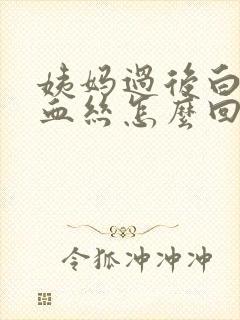 姨妈过后白
血丝怎麼回
令狐冲冲冲